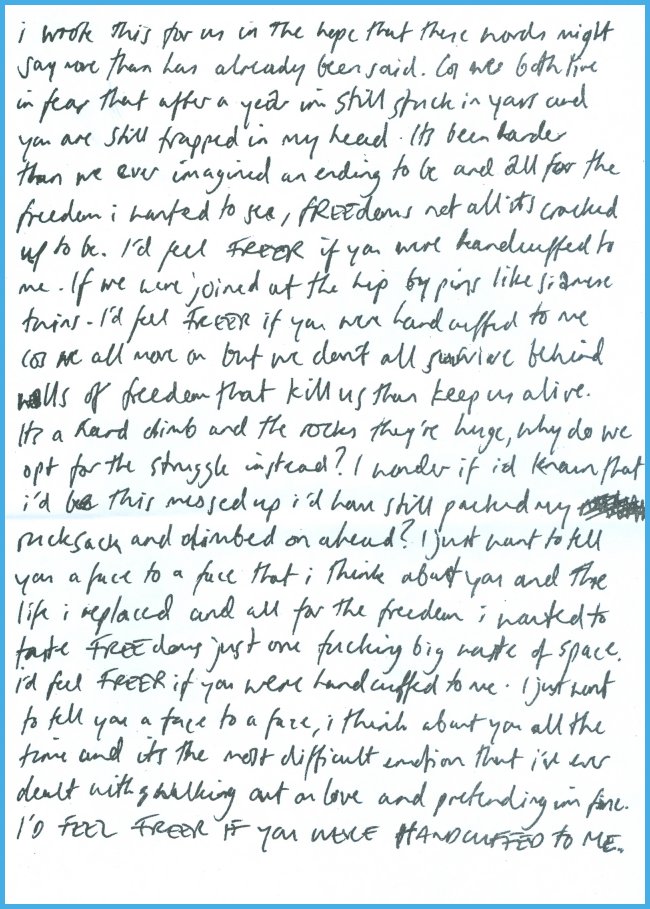 i wrote this for us in the hope that these words might
say more than has already been said. Cos we both live
in fear that after a year im still stuck in yours and
you are still trapped in my head. Its been harder
than we ever imagined an ending to be and all for the
freedom i wanted to see, FREEdoms not all its cracked
up to be. I'd feel FREER if you were handcuffed to
me. If we were joined at the hip by pins like siamese
twins. I'd feel FREER if you were handcuffed to me
cos we all move on but we don't all survive behind
walls of freedom that kill us than keep us alive.
Its a hard climb and the rocks they're huge, why do we
opt for the struggle instead? I wonder if i'd known that
i'd be this messed up i'd have still packed my
rucksack and climbed on ahead? I just want to tell
you a face to a face that i think about you and the
life i replaced and all for the freedom i wanted to
taste FREEdoms just one fucking big waste of space.
i'd feel FREER if you were handcuffed to me. I just want
to tell you a face to a face, i think about you all the
time and its the most difficult emotion that i've ever
dealt with, walking out on love and pretending im fine.
I'D FEEL FREER IF you WERE HANDCUFFED to ME.